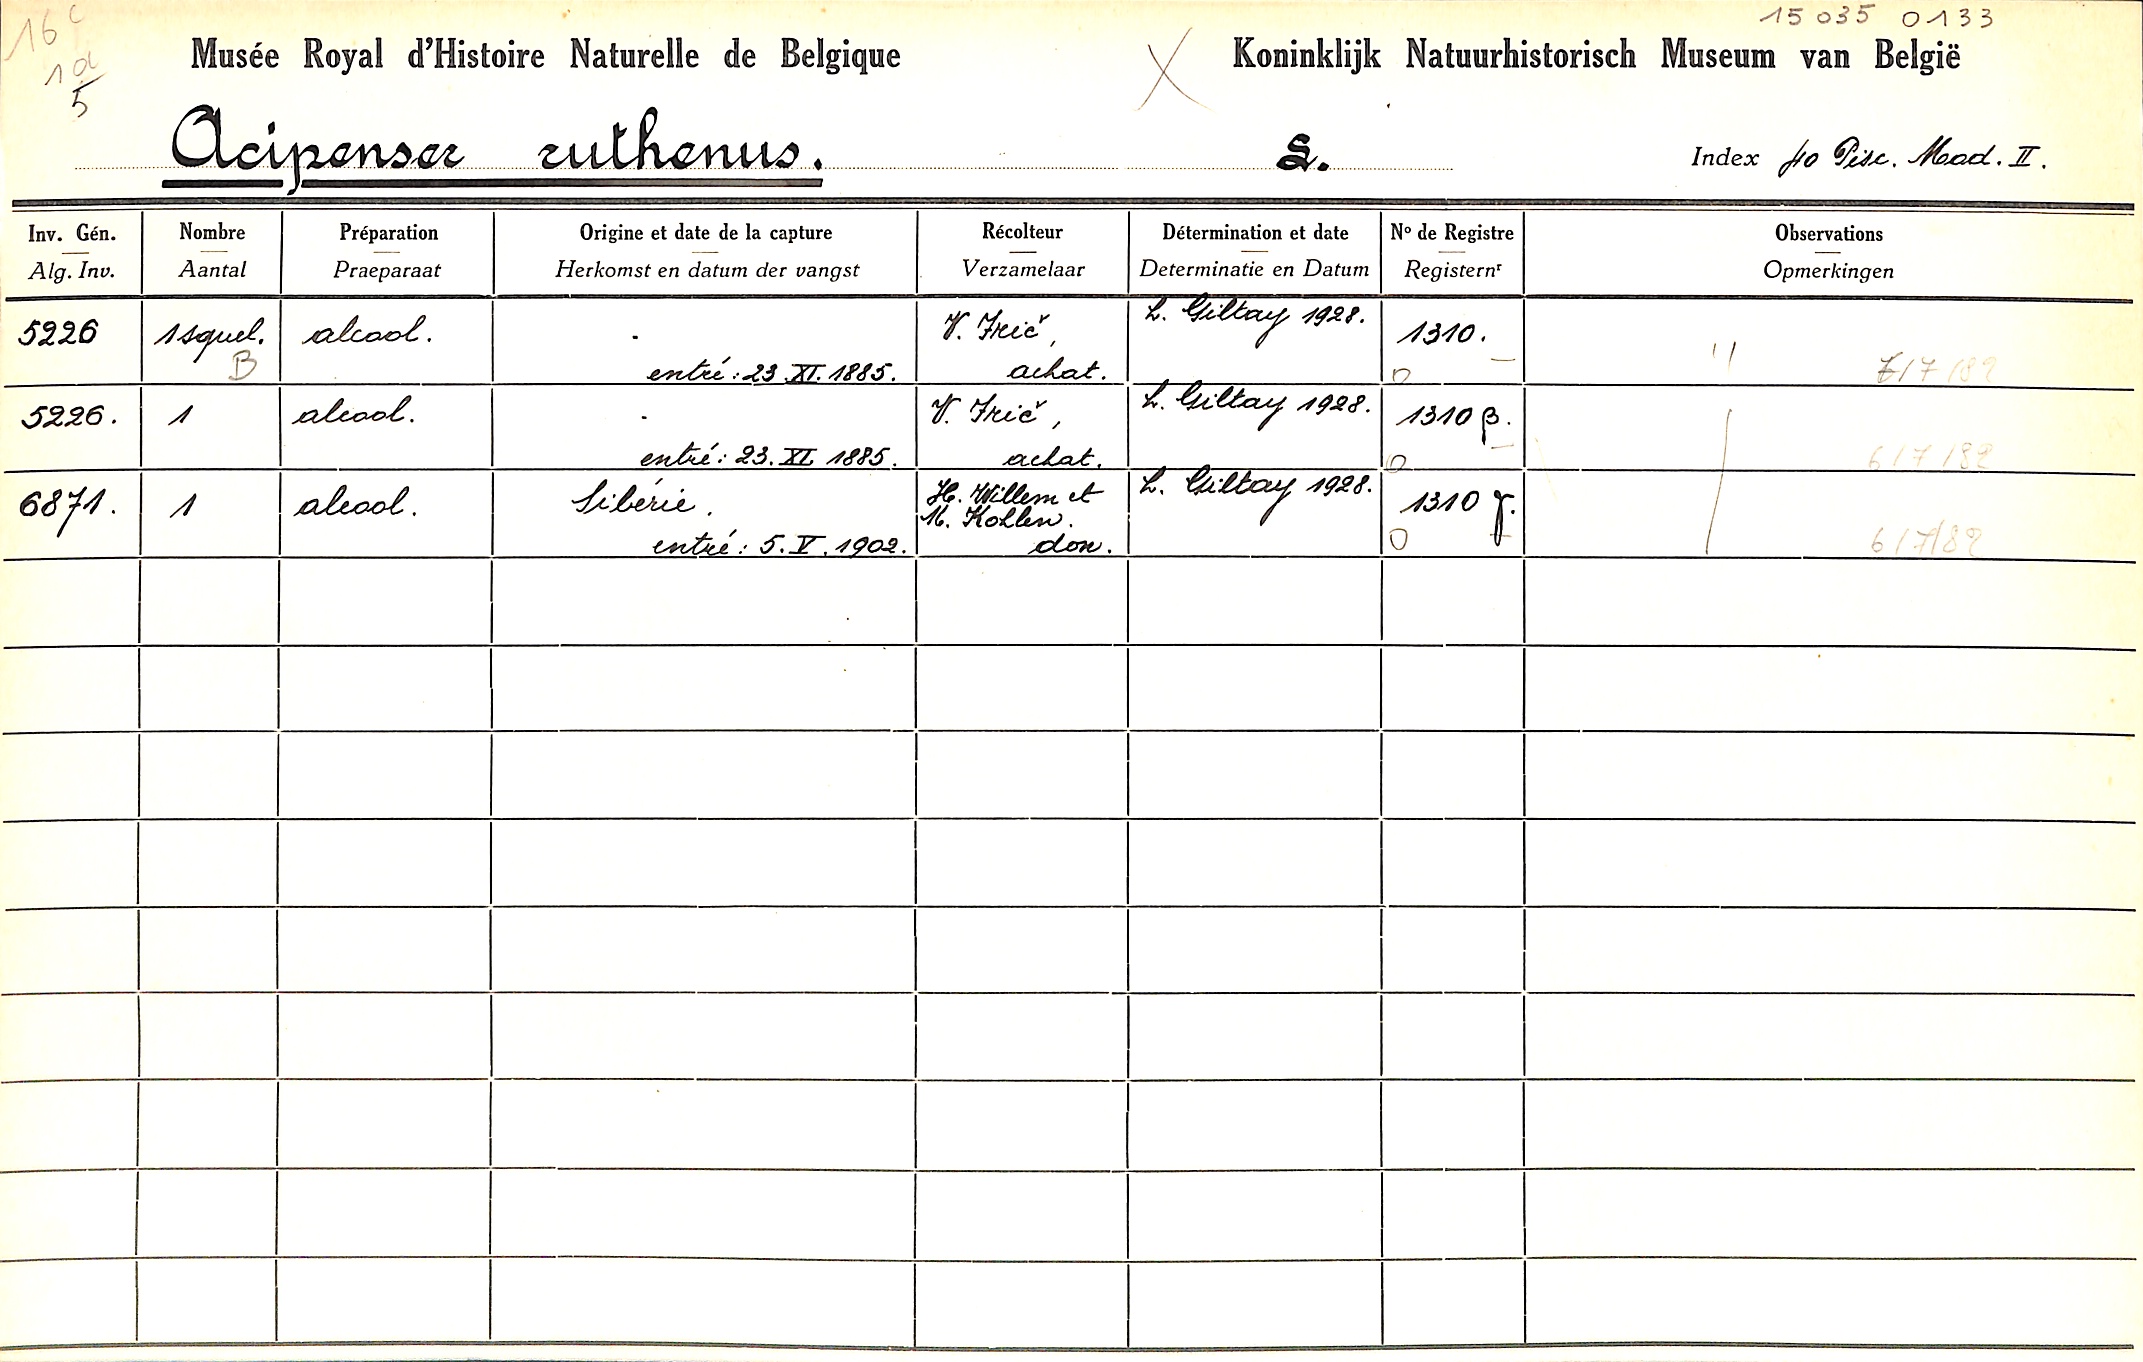 16 c
1 a
5
15 035 0133
Musée Royal d'Histoire Naturelle de Belgique
X
Koninklijk Natuurhistorisch Museum van België
Acipenser ruthenus.
L.
Index Pisc. II.
Inv. Gén.
Alg. Inv.
Nombre
Aantal
Préparation
Praeparaat
Origine et date de la capture
Herkomst en datum der vangst
Récolteur
Verzamelaar
Détermination et date
Determinatie en Datum
Nº de Registre
Registernr
Observations
Opmerkingen
5226
1 squel.
B
alcool.
entré: 23.XI.1885.
V. Frič,
achat.
L. Giltay 1928.
1310.
6/7/82
5226.
1
alcool.
entré: 23.XI.1885.
V. Frič,
achat.
L. Giltay 1928.
1310 β.
6/7/82
6871.
1
alcool.
Sibérie.
entré: 5.V.1902.
H. Willem et
M. Kollen.
don.
L. Giltay 1928.
1310 γ.
6/7/82